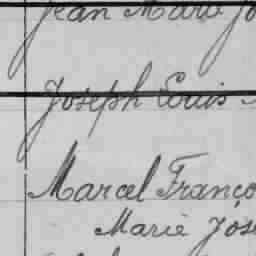 Jean Marie Jo
Joseph Louis
Marcel Franço
Marie Jose